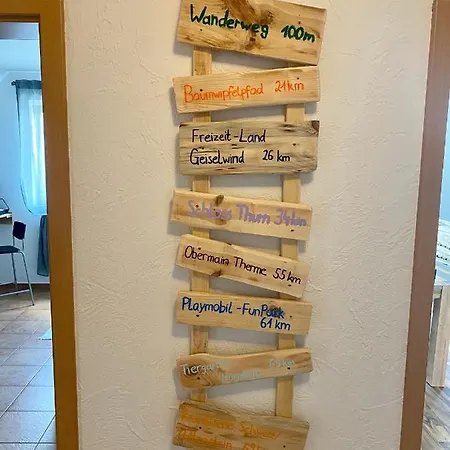 Wanderweg 100m
Baumwipfelpfad 21km
Freizeit-Land
Geiselwind 26 km
Schloss Thurn 34km
Obermain Therme 55 km
Playmobil-FunPark
61 km